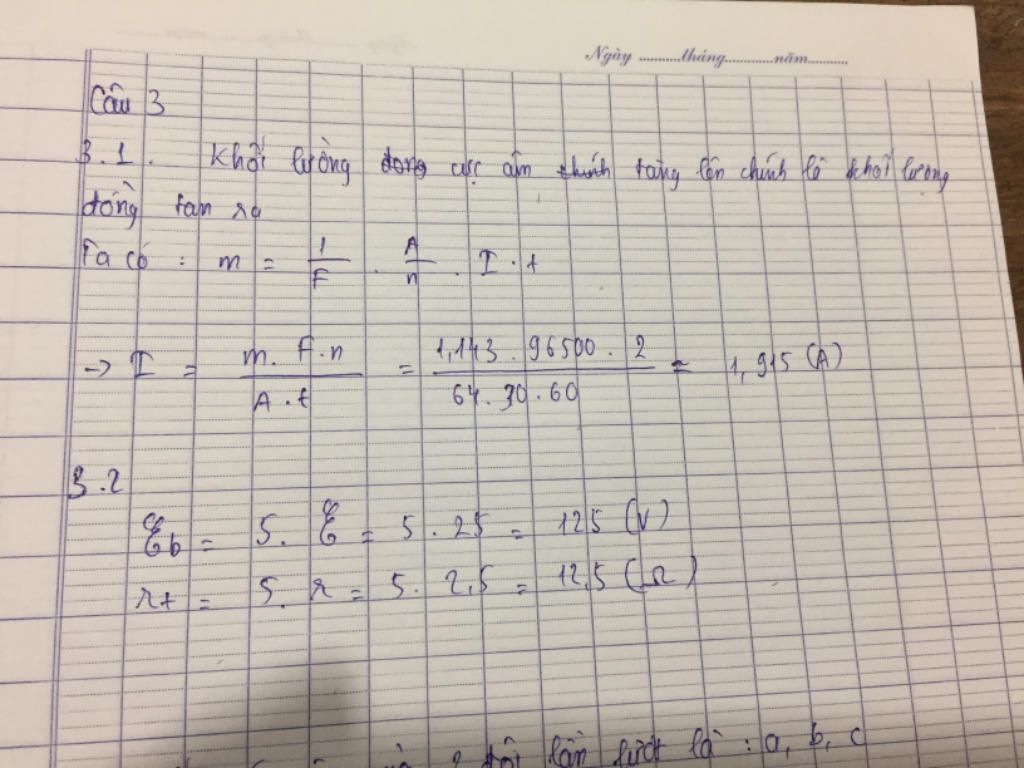 Ngày ..........tháng..........năm..........
Câu 3
3.1. Khối lường đong cực âm thính tăng lên chính là khối lượng
đồng tan ra
Ta có : m = 1/F . A/n . I . t
→ I = m. F.n / A.t = 1,143. 96500. 2 / 64. 30. 60 = 1,915 (A)
3.2
ℰb = 5. ℰ = 5. 25 = 125 (V)
rt = 5. r = 5. 2,5 = 12,5 (Ω)
lần lượt là : a, b, c